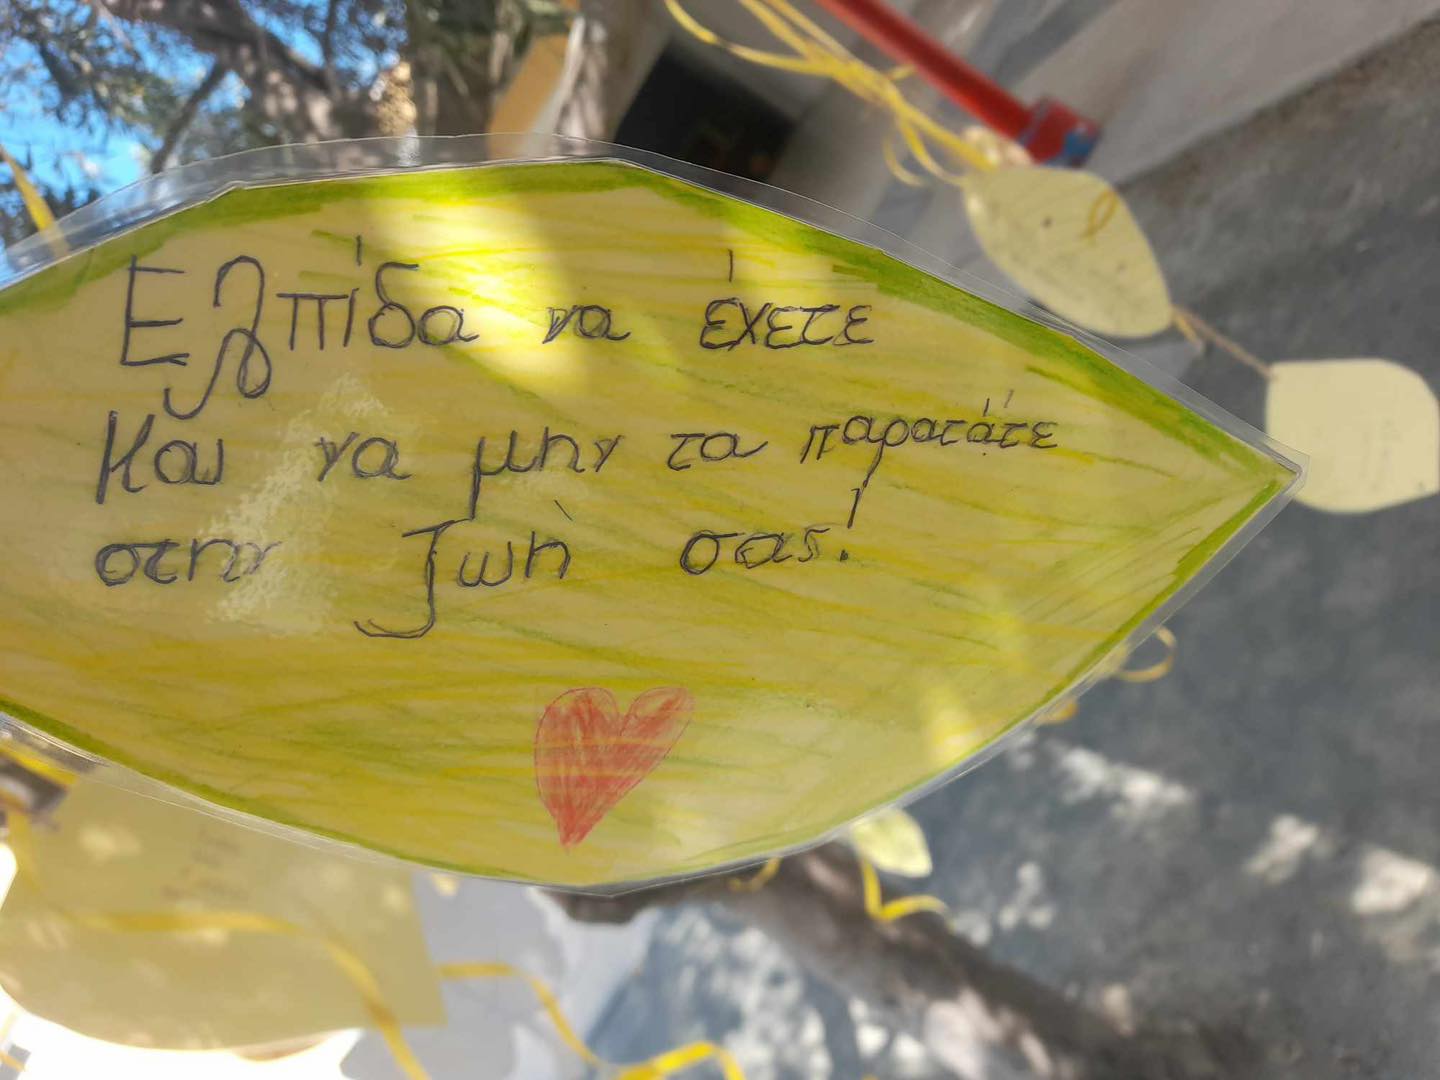 Ελπίδα να έχετε
Και να μην τα παρατάτε
στην ζωή σας!